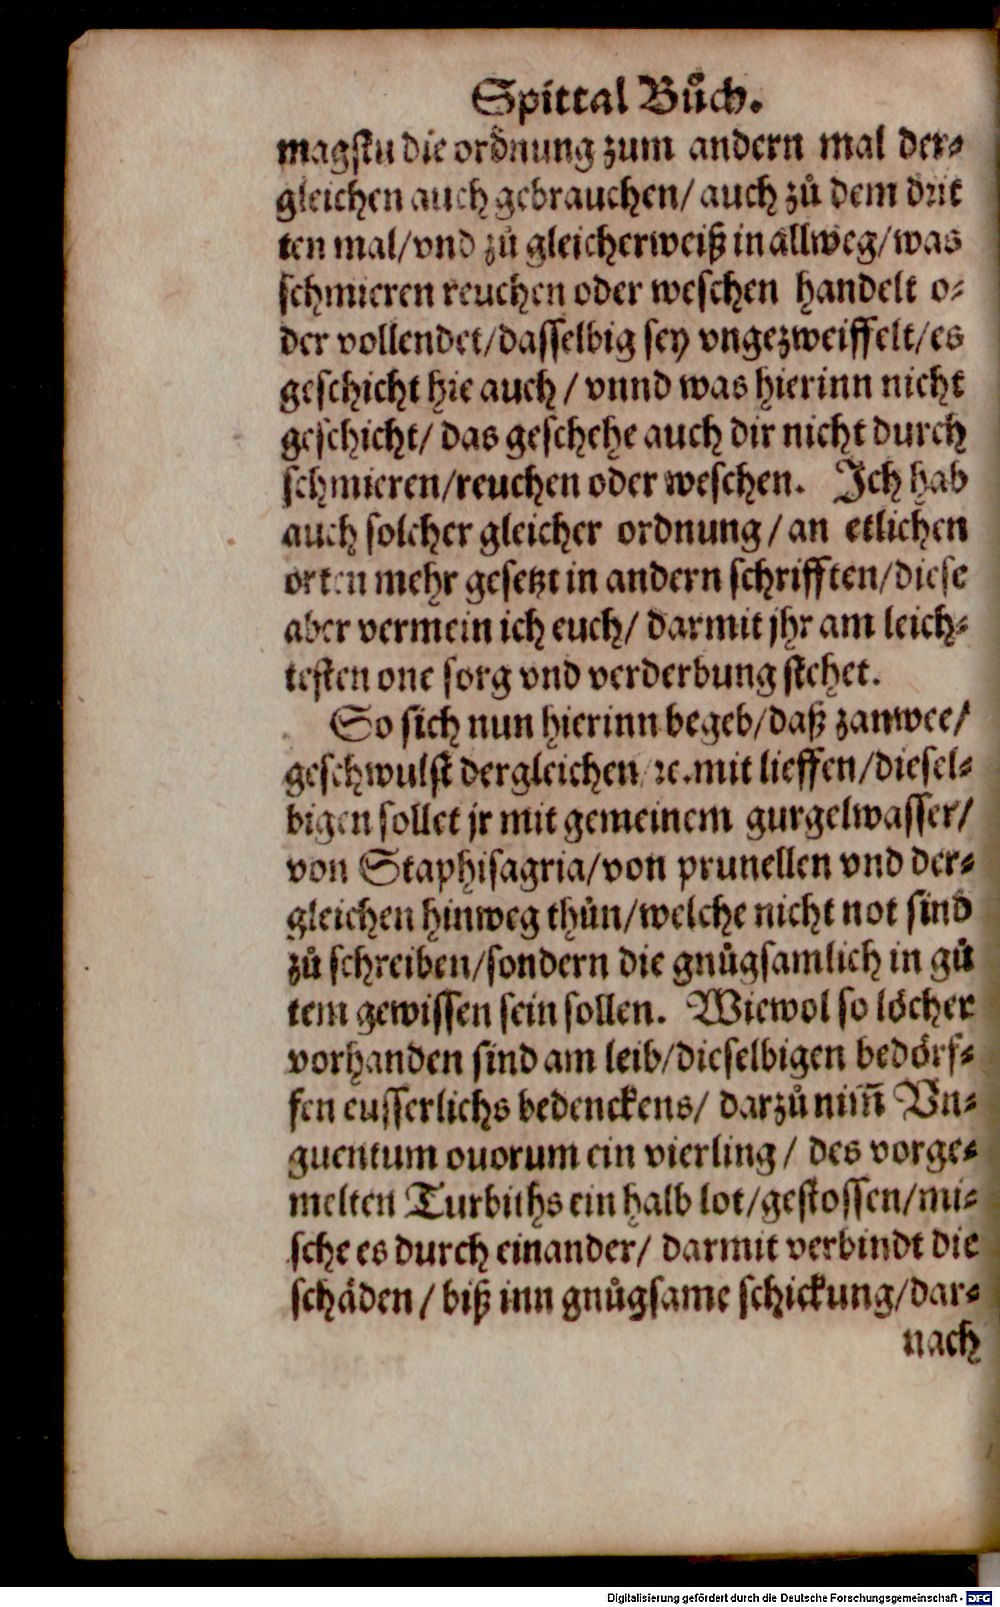 Spittal Bůch.
magstu die ordnung zum andern mal der-
gleichen auch gebrauchen/ auch zů dem drit
ten mal/vnd zů gleicherweiß in allweg/was
schmieren reuchen oder weschen handelt o-
der vollendet/dasselbig sey vngezweiffelt/es
geschicht hie auch / vnnd was hierinn nicht
geschicht/ das geschehe auch dir nicht durch
schmieren/reuchen oder weschen. Ich hab
auch solcher gleicher ordnung/an etlichen
orten mehr gesetzt in andern schrifften/diese
aber vermein ich euch/ darmit jhr am leich-
testen one sorg vnd verderbung stehet.
So sich nun hierinn begeb/daß zanwee/
geschwulst dergleichen ꝛc.mit lieffen/diesel-
bigen sollet jr mit gemeinem gurgelwasser/
von Staphisagria/von prunellen vnd der-
gleichen hinweg thůn/welche nicht not sind
zů schreiben/sondern die gnůgsamlich in gů
tem gewissen sein sollen. Wiewol so löcher
vorhanden sind am leib/dieselbigen bedörf-
fen eusserlichs bedenckens/ darzů nim̃ Vn-
guentum ouorum ein vierling / des vorge-
melten Turbiths ein halb lot/gestossen/mi-
sche es durch einander/ darmit verbindt die
schäden / biß inn gnůgsame schickung/dar-
nach
Digitalisierung gefördert durch die Deutsche Forschungsgemeinschaft - DFG